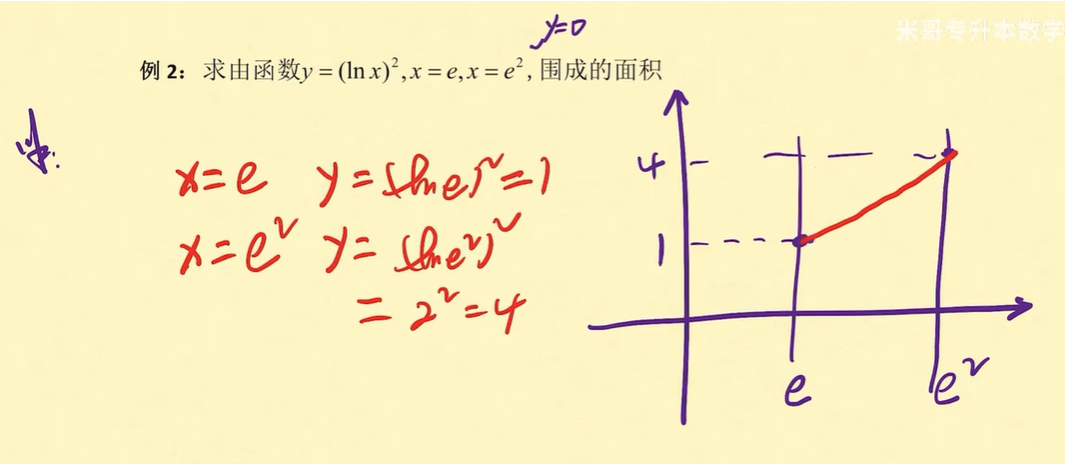 米哥专升本数学
y=0
例 2：求由函数y=(ln x)²,x=e,x=e²,围成的面积
解:
x=e y=(lne)²=1
x=e² y=(lne²)²
=2²=4
4
1
e e²